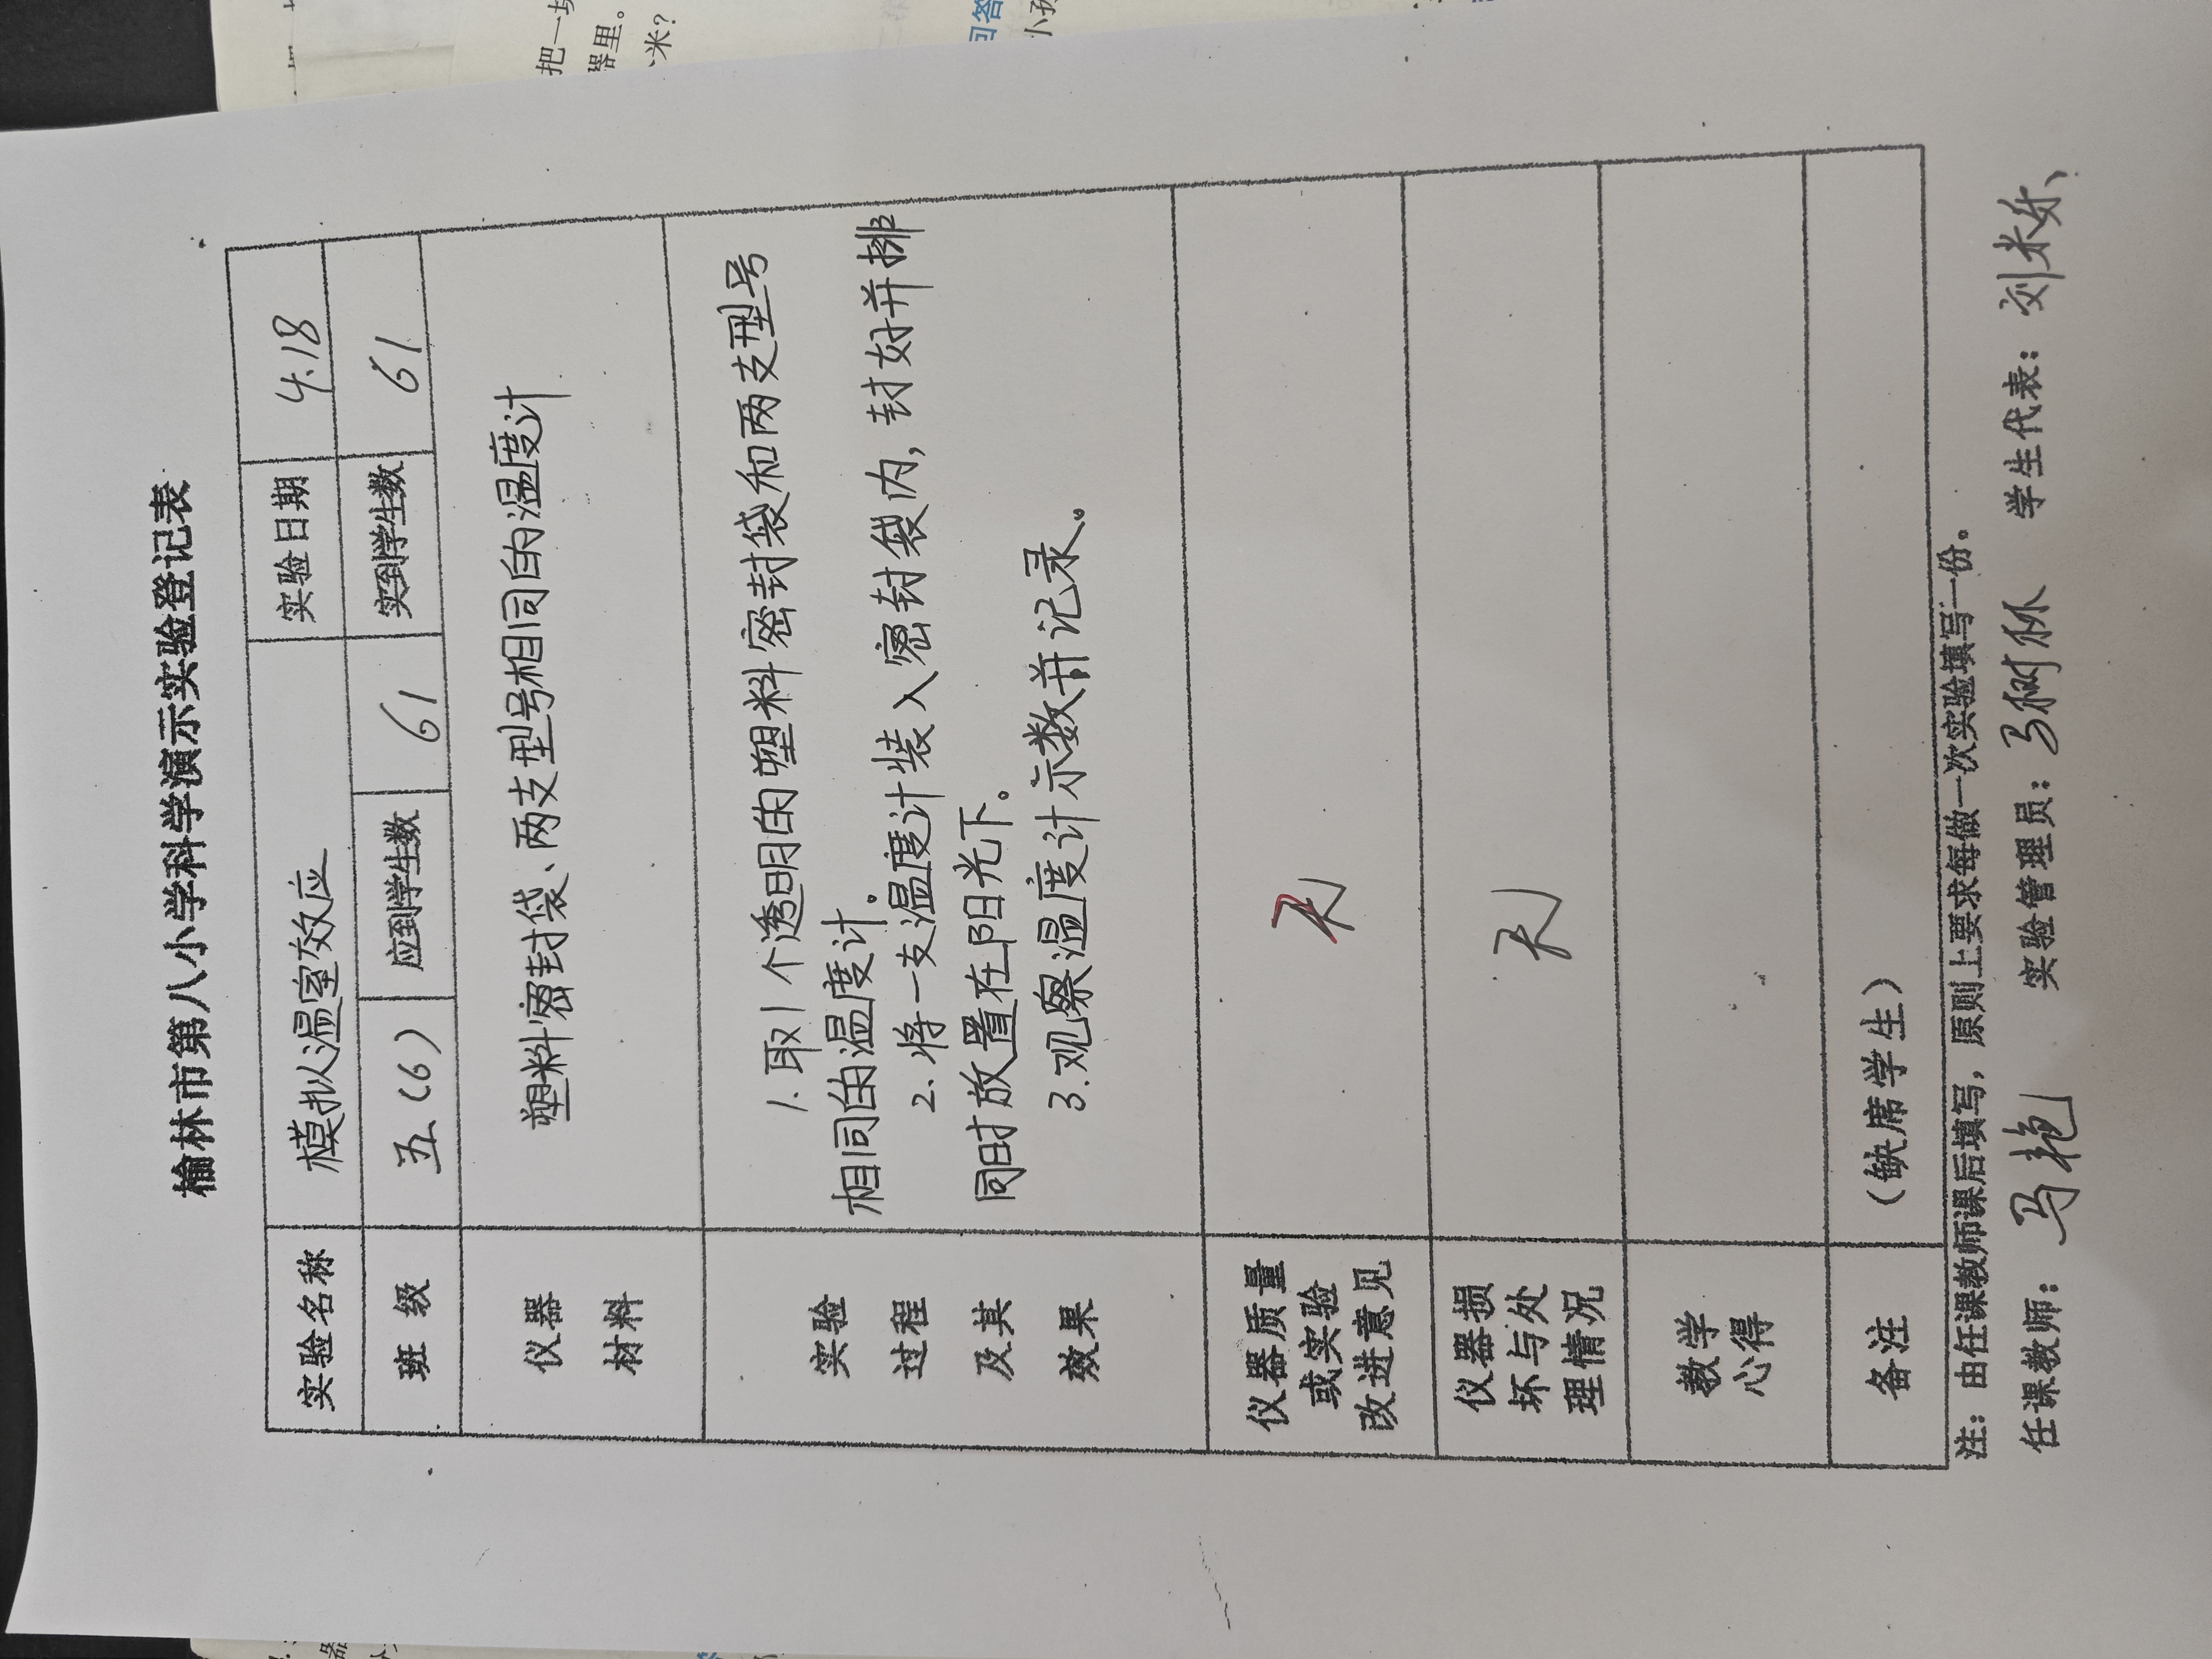 榆林市第八小学科学演示实验登记表
实验名称 模拟温室效应 实验日期 4.18
班 级 五(6) 应到学生数 61 实到学生数 61
仪器
材料
塑料密封袋、两支型号相同的温度计
实验
过程
及其
效果
1.取1个透明的塑料密封袋和两支型号
相同的温度计。
2.将一支温度计装入密封袋内,封好并排
同时放置在阳光下。
3.观察温度计示数并记录。
仪器质量
或实验
改进意见
无
仪器损
坏与处
理情况
无
教学
心得
备注 (缺席学生)
注:由任课教师课后填写,原则上要求每做一次实验填写一份。
任课教师: 马艳 实验管理员: 马树林 学生代表: 刘
把一块
器里。
米?
回答